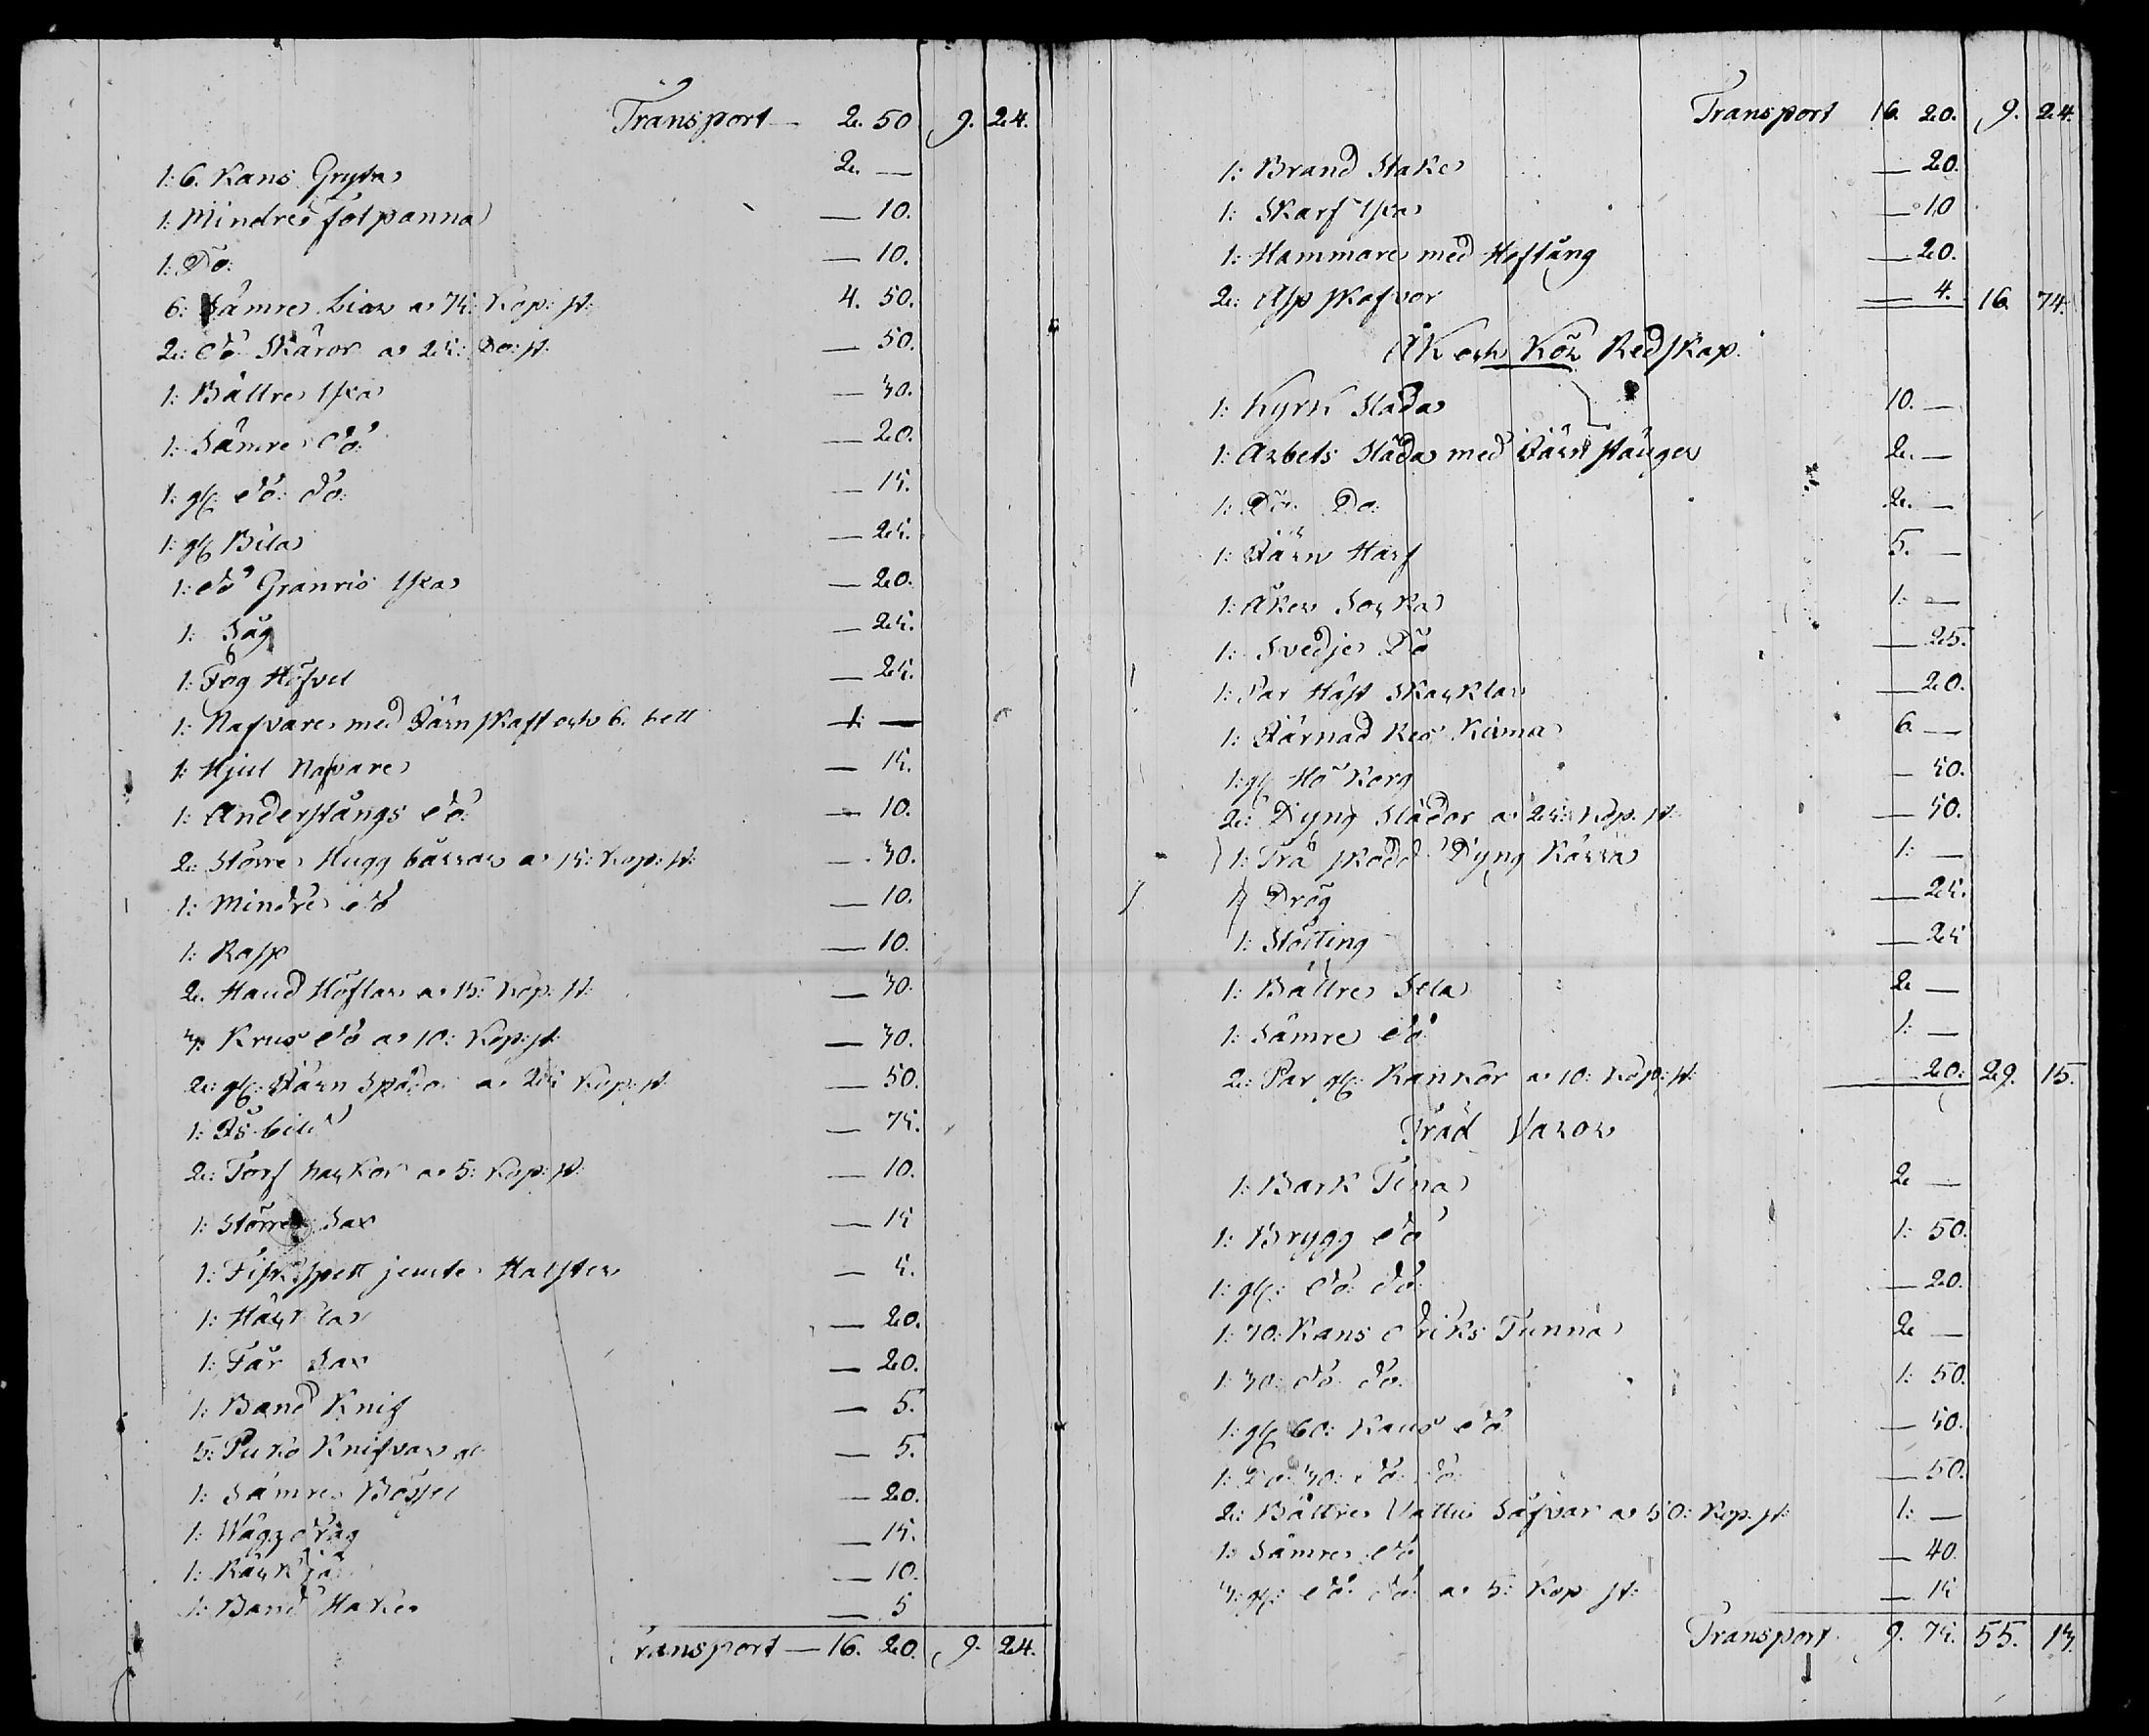 Transport — 2. 50. 9. 24.
1: 6. Kans Gryta 2. —
1: Mindre fotpanna — 10.
1: Do: — 10.
6: Sämre Liar a 75: Kop: st: 4. 50.
2: do Skäror a 25: Do: st: — 50.
1: Bättre Yxa — 30.
1: Sämre do: — 20.
1: gl: do: do: — 15.
1: gl: Bila — 25.
1: do Granris Yxa — 20.
1: Såg — 25.
1: Fog Höfvel — 25.
1: Nafvare med Järn skaft och 6. bett 1: —
1: Hjul Nafvare — 15.
1: Anderstångs do: — 10.
2: Större Hugg bärror a 15: Kop: st: — 30.
1: Mindre do — 10.
1: Rasp — 10.
2. Hand Höflar a 15: Kop: st: — 30.
3: Krus do a 10: Kop: st: — 30.
2: gl: Järn Spadar a 25: Kop: st: — 50.
1: Is bill — 75.
2: Torf hackor a 5: Kop: st: — 10.
1: Större Sax — 15
1: Fisk spett jemte Halster — 5.
1: Häckla — 20.
1: Får Sax — 20.
1: Band Knif — 5.
5: Puko Knifvar gl: — 5.
1: Sämre Bössel — 20.
1: Wäg — 15.
1: — 10.
1: Band Hake — 5
Transport — 16. 20. 9. 24.
Transport 16. 20. 9. 24.
1: Brand Stake — 20.
1: Skarf Yxa — 10
1: Hammare med Hoftång — 20.
2: Asp skafvor — 4. 16. 74.
Åk och Kör Redskap.
1: Kyrk Släda 10. —
1: Arbets Släda med Järn stänger 2. —
1: Do: Do: 2. —
1: Järn Harf 5. —
1: Åker Socka 1: —
1: Svedje Do — 25.
1: Par Häst Skacklar — 20.
1: Järnad Res Kärra 6 —
1: gl: Hö Korg — 50.
2: Dyng Slädor a 25: Kop: st: — 50.
1: Trä skodd Dyng Kärra 1: —
1: Drög — 25.
1: Stötting — 25
1: Bättre Sela 2 —
1: Sämre do 1: —
2: Par gl: Rankor a 10: Kop: st: — 20: 29. 15.
Träd Varor
1: Bark Tina 2 —
1: Brygg do 1: 50.
1: gl: do: do: — 20.
1: 70: Kans Driks Tunna 2 —
1: 30: do do: 1: 50.
1: gl: 60: Kans do — 50.
1: Do 30: do: do: — 50.
2: Bättre Vattu Såfvar a 50: Kop: st: 1: —
1: Sämre do — 40.
3: gl: do: do: a 5: Kop st: — 15
Transport 9. 75. 55. 13.